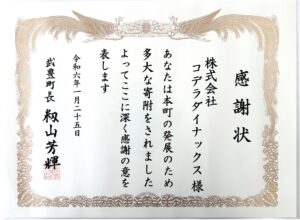 感謝状
株式会社
コデラダイナックス 様
あなたは本町の発展のため
多大な寄附をされました
よってここに深く感謝の意を
表します
令和六年一月二十五日
武豊町長 籾山芳輝